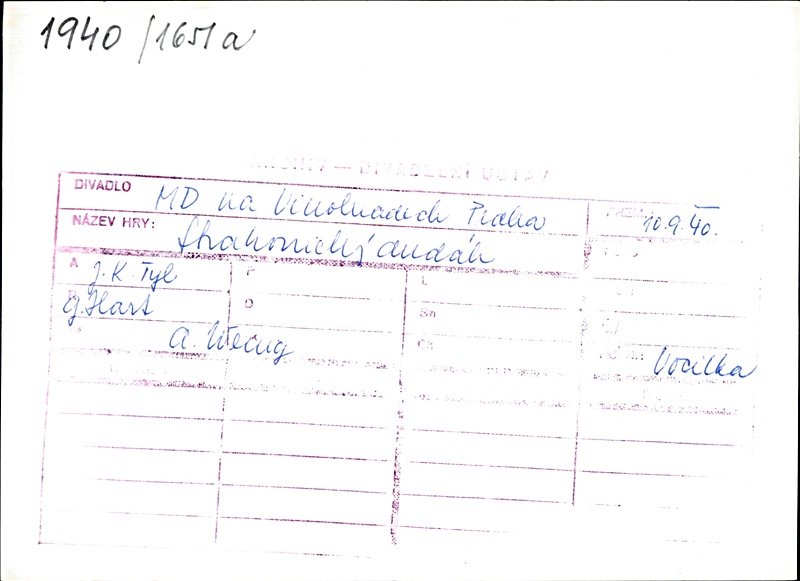 1940 /1651 a
ARCHIV — DIVADELNÍ ÚSTAV
DIVADLO MD na Vinohradech Praha 10.9.40.
NÁZEV HRY: Strakonický dudák
A J. K. Tyl P L
J. Hart O Sn
A. Wenig Ch Vocilka